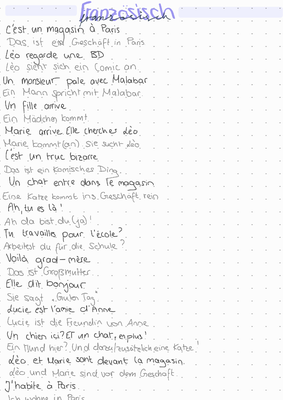 Französisch
C'est un magasin à Paris
Das ist ein Geschäft in Paris
Léo regarde une BD
Léo sieht sich ein Comic an
Un monsieur pale avec Malabar
Ein Mann spricht mit Malabar
Un fille arrive
Ein Mädchen kommt
Marie arrive Elle cherches Léo
Marie kommt (an). Sie sucht Léo
C'est un truc bizarre
Das ist ein komisches Ding.
Un chat entre dans le magasin
Eine Katze kommt ins Geschäft rein
Ah, tu es là!
Ah da bist du (ja)!
Tu travailles pour l'école?
Arbeitest du für die Schule?
Voilà grad-mère
Das ist Großmutter
Elle dit bonjour
Sie sagt „Guten Tag"
Lucie est l'amie d'Anne
Lucie ist die Freundin von Anne
Un chien ici? ET un chat, en plus!
Ein Hund hier? Und dazu/zusätzlich eine Katze!
Léo et Marie sont devant la magasin
Léo und Marie sind vor dem Geschäft
J'habite à Paris
Ich wohne in Paris